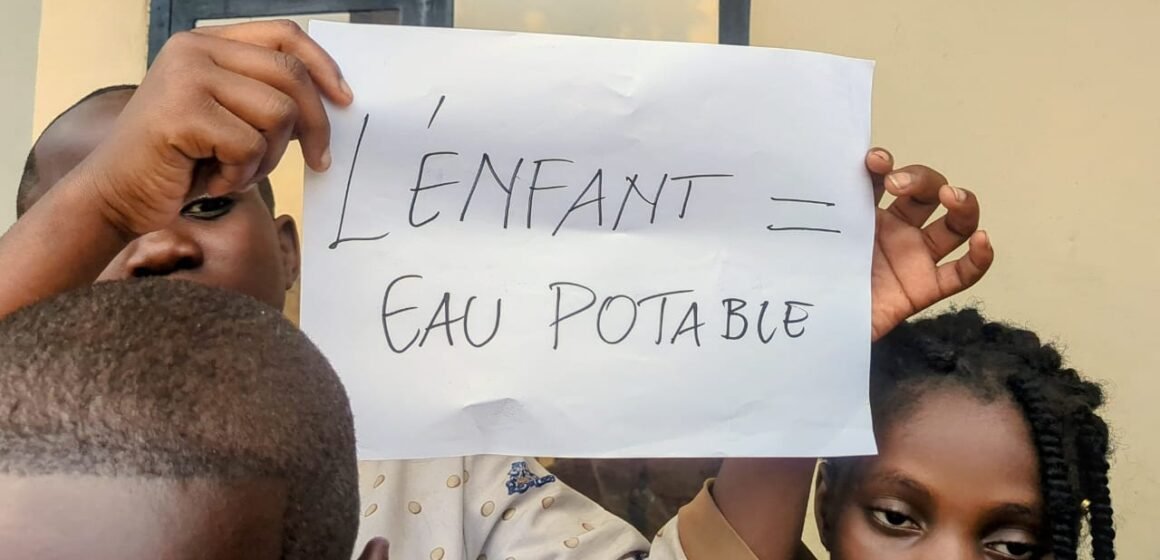 L'ÉNFANT =
EAU POTABLE